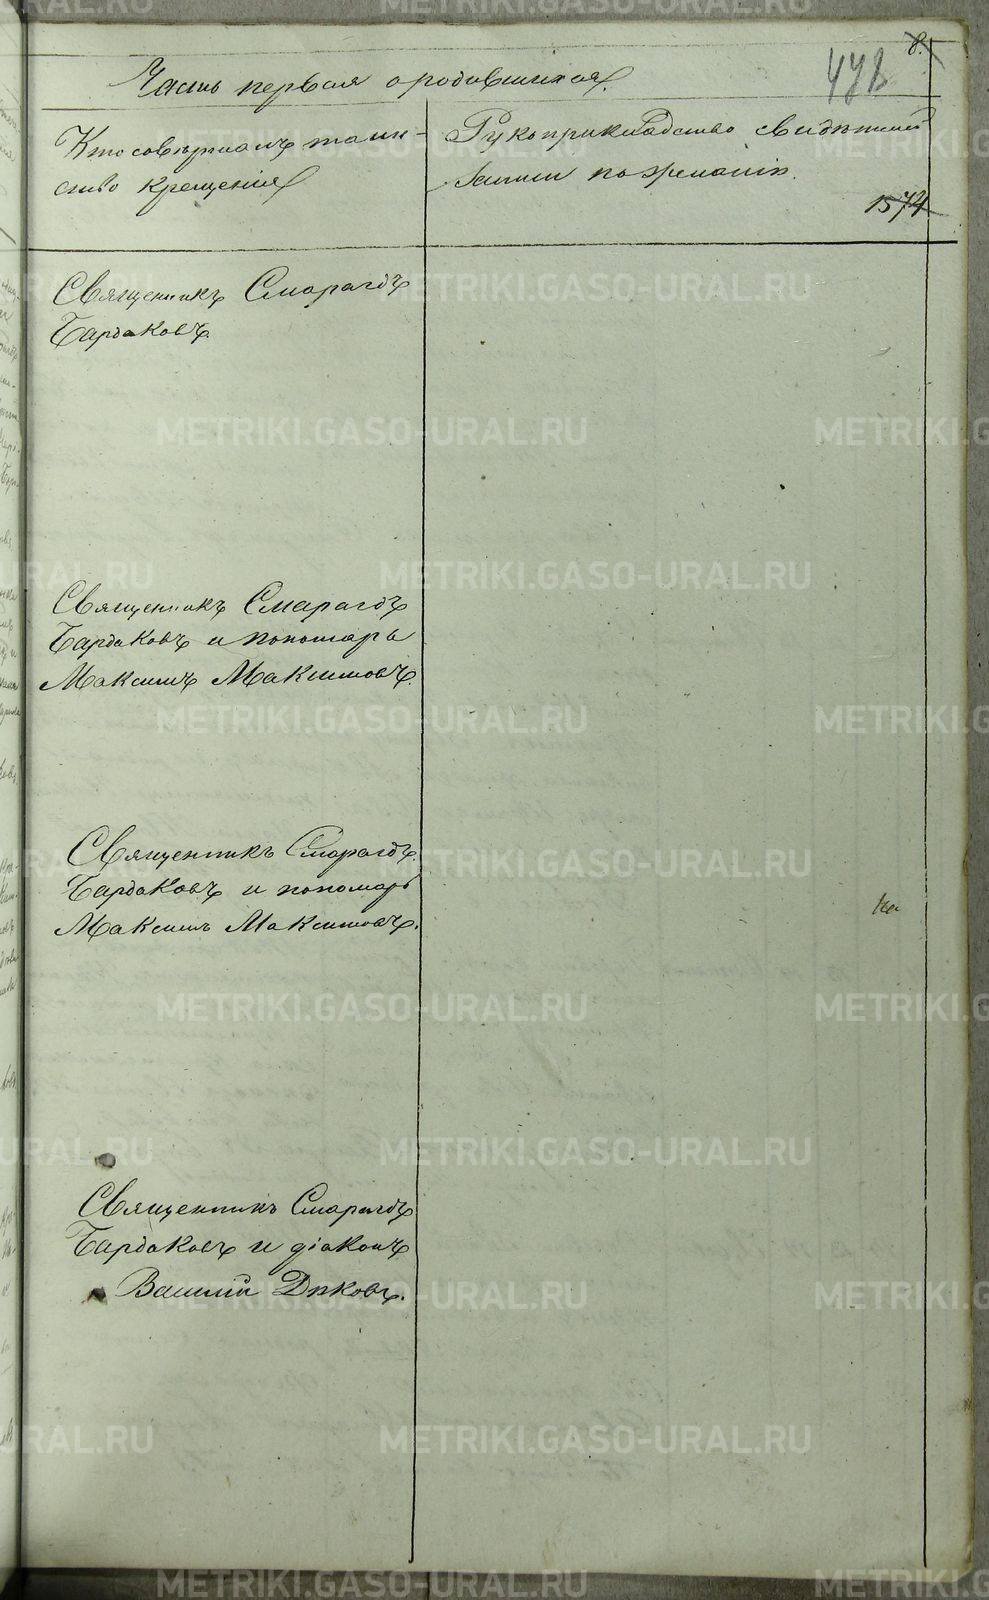 8.
478
Часть первая о родившихся.
Кто совершалъ таин-
ство крещенія
Рукоприкладство свидѣтелей
записи по желанію.
1574
Священникъ Смарагдъ
Бардаковъ.
Священникъ Смарагдъ
Бардаковъ и пономарь
Максимъ Максимовъ.
Священникъ Смарагдъ
Бардаковъ и пономарь
Максимъ Максимовъ.
Священникъ Смарагдъ
Бардаковъ и діаконъ
Василій Дьковъ.
METRIKI.GASO-URAL.RU